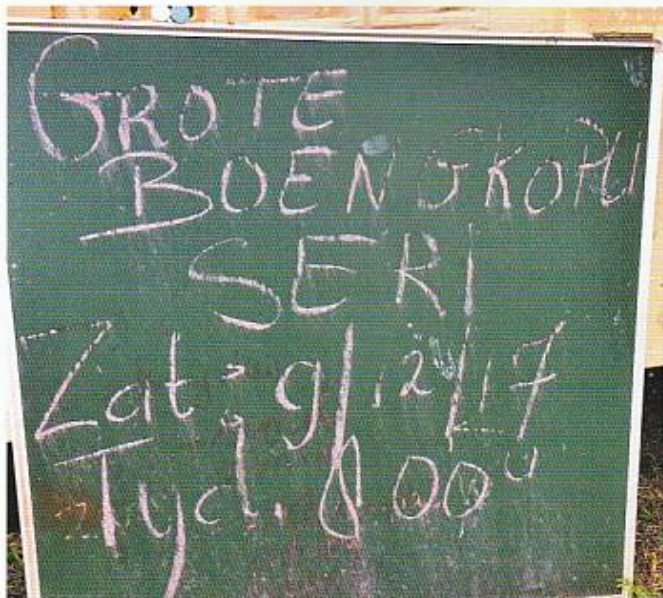 GROTE
BOENGKOPU
SERI
Zat; 9/12/17
Tyd. 8 00 u